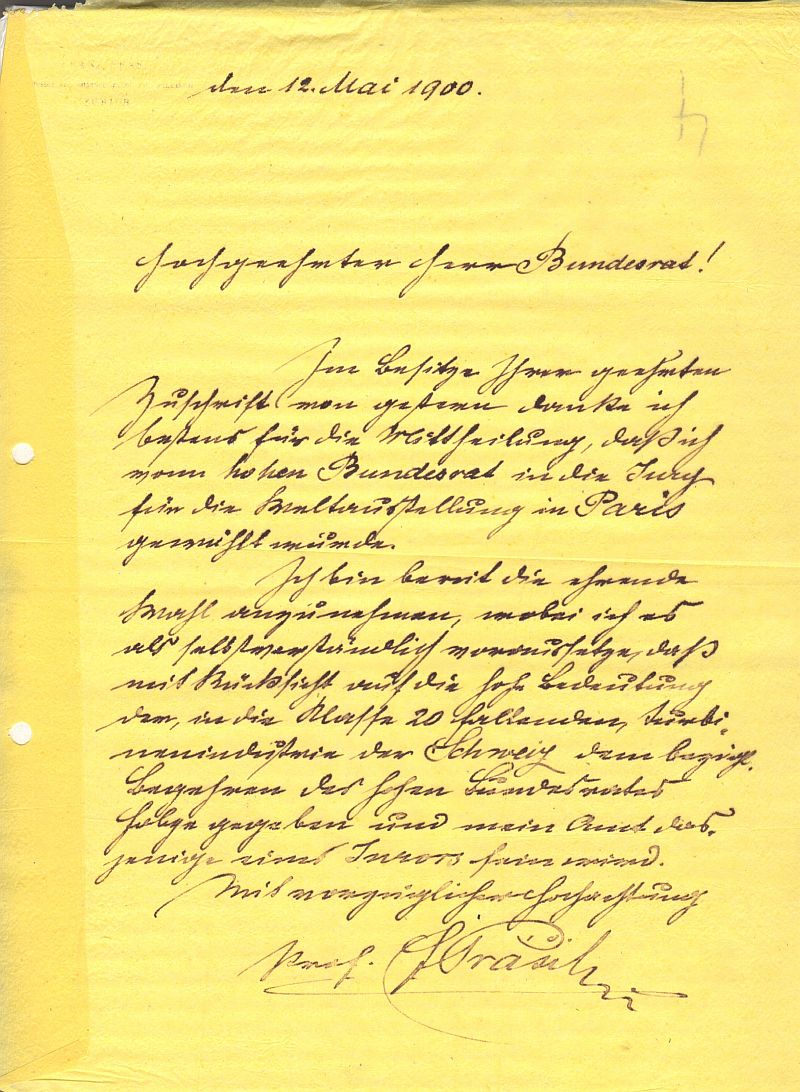 ZÜRICH
den 12. Mai 1900.
4
Hochgeehrter Herr Bundesrat!
Im Besitze Ihrer geehrten
Zuschrift von gestern danke ich
bestens für die Mittheilung, daß ich
vom hohen Bundesrat in die Jury
für die Weltausstellung in Paris
gewählt wurde.
Ich bin bereit die ehrende
Wahl anzunehmen, wobei ich es
als selbstverständlich voraussetze, daß
mit Rücksicht auf die hohe Bedeutung
der, in die Klasse 20 fallenden, Turbi-
nenindustrie der Schweiz dem bezügl.
Begehren des hohen Bundesrates
Folge gegeben und mein Amt das-
jenige eines Jurors sein wird.
Mit vorzüglicher Hochachtung
Prof. F Präsil